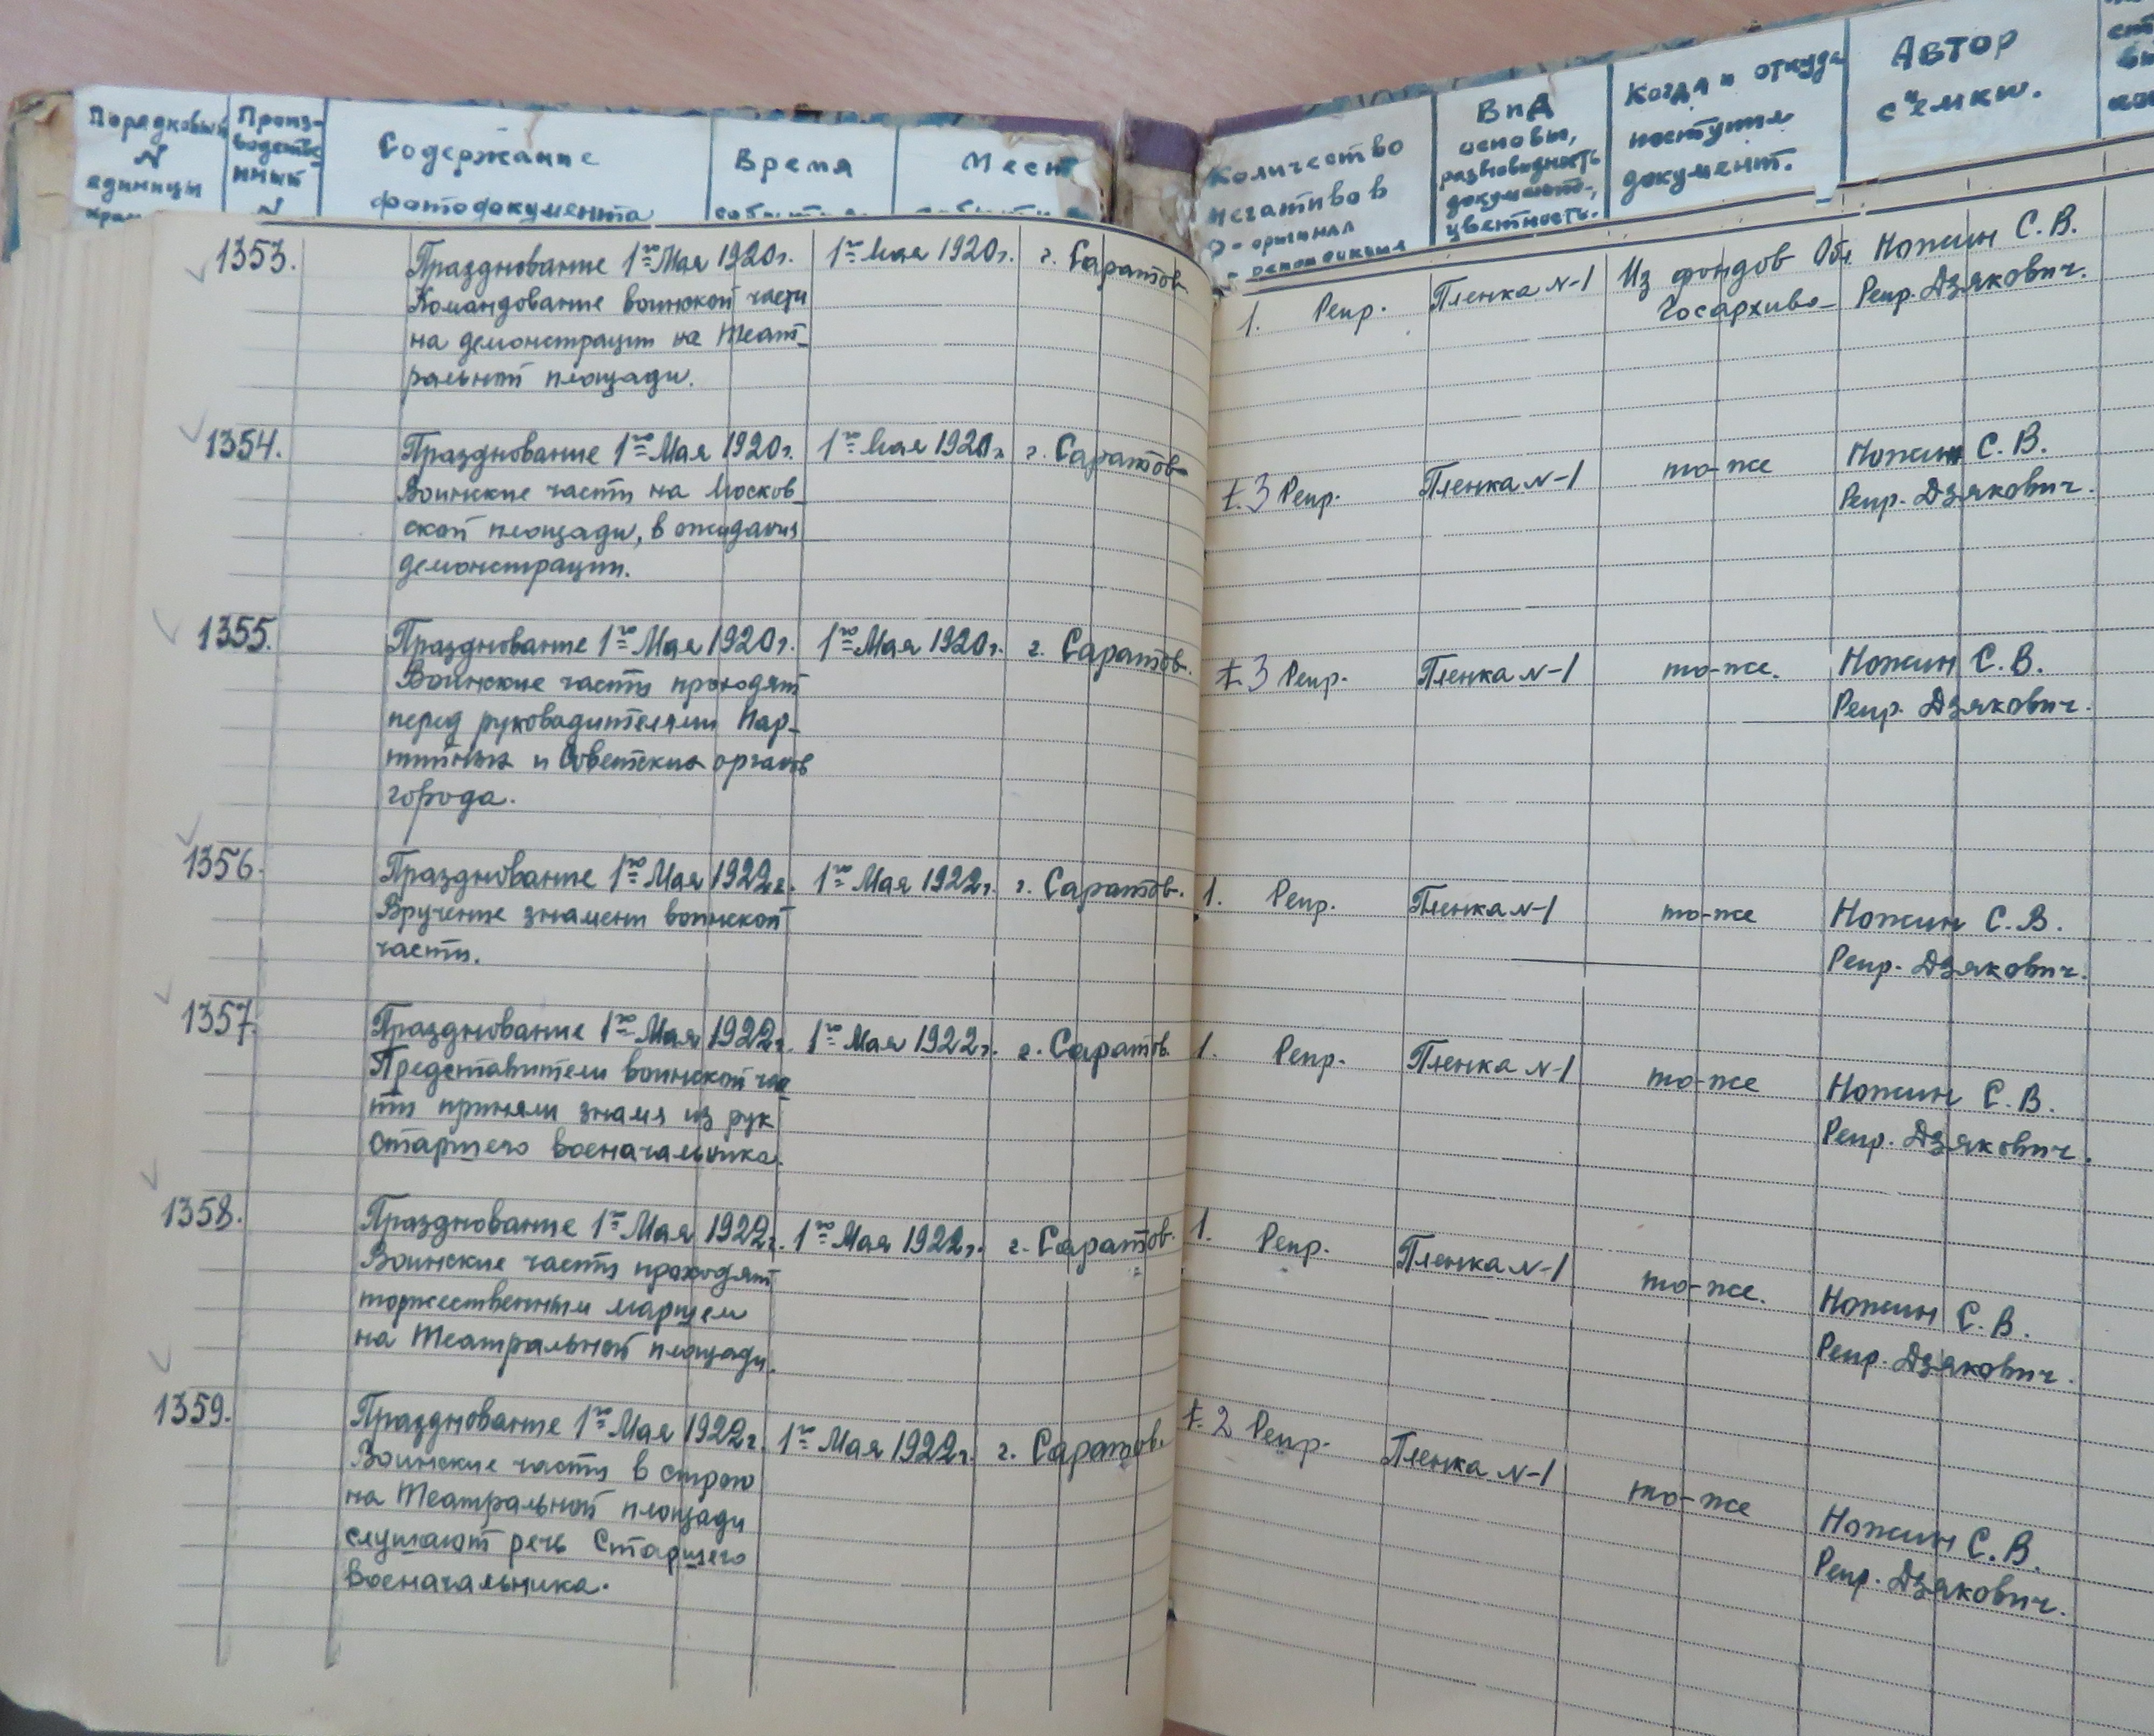 Порядковый
№
единицы
Произ-
водстве
нный
№
Содержание
фотодокумента
Время
события
Мест
Количество
негативов
О - оригинал
Вид
основы,
разновидность
документо-,
цветность.
Когда и откуда
поступил
документ.
Автор
съёмки.
1353. Празднование 1го Мая 1920г. 1го Мая 1920г. г. Саратов. 1. Репр. Пленка №1 Из фондов Обл. Ножин С. В.
Командование воинской части Госархива Репр. Дзякович.
на демонстрации на Театральной
ральной площади.
1354. Празднование 1го Мая 1920г. 1го Мая 1920г. г. Саратов 1. 3 Репр. Пленка №1 то-же Ножин С. В.
Воинские части на Москов Репр. Дзякович.
ской площади, в ожидании
демонстрации.
1355. Празднование 1го Мая 1920г. 1го Мая 1920г. г. Саратов. 1. 3 Репр. Пленка №1 то-же. Ножин С. В.
Воинские части проходят Репр. Дзякович.
перед руководителями Пар-
тийных и Советских органов
города.
1356. Празднование 1го Мая 1922г. 1го Мая 1922г. г. Саратов. 1. Репр. Пленка №1 то-же Ножин С. В.
Вручение знамени воинской Репр. Дзякович.
части.
1357. Празднование 1го Мая 1922г. 1го Мая 1922г. г. Саратов. 1. Репр. Пленка №1 то-же Ножин С. В.
Представители воинской час Репр. Дзякович.
ти приняли знамя из рук
старшего военачальника.
1358. Празднование 1го Мая 1922г. 1го Мая 1922г. г. Саратов. 1. Репр. Пленка №1 то-же. Ножин С. В.
Воинские части проходят Репр. Дзякович.
торжественным маршем
на Театральной площади.
1359. Празднование 1го Мая 1922г. 1го Мая 1922г. г. Саратов. 1. 2 Репр. Пленка №1 то-же Ножин С. В.
Воинские части в строю Репр. Дзякович.
на Театральной площади
слушают речь Старшего
Военачальника.